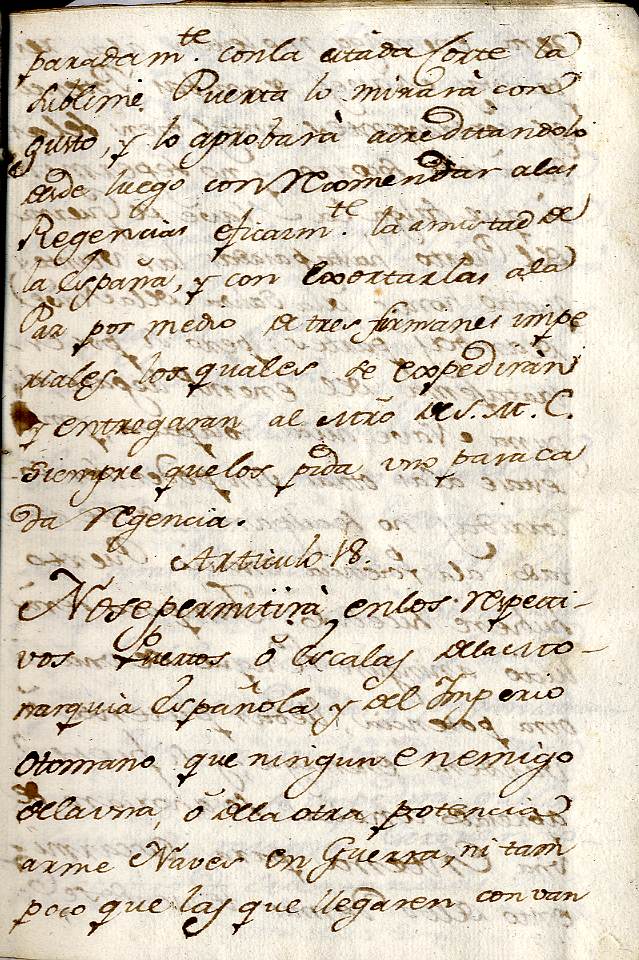 paradam.te con la citada Corte la
Sublime Puerta lo mirarà con
gusto, y lo aprobarà acreditandolo
desde luego con recomendar a las
Regencias eficazm.te la amistad de
la España, y con exortarlas a la
Paz por medio de tres firmanes impe
riales los quales se expediràn
y entregaran al Mtrõ de S. M. C.
siempre que los pida uno para ca
da regencia.
Articulo 18.
No se permitirà en los respecti-
vos Puertos ò Escalas de la Mo-
narquia Española y del Imperio
Otomano que ningun enemigo
de la una, ò de la otra potencia
arme Naves en Guerra, ni tam
poco que las que llegaren con van